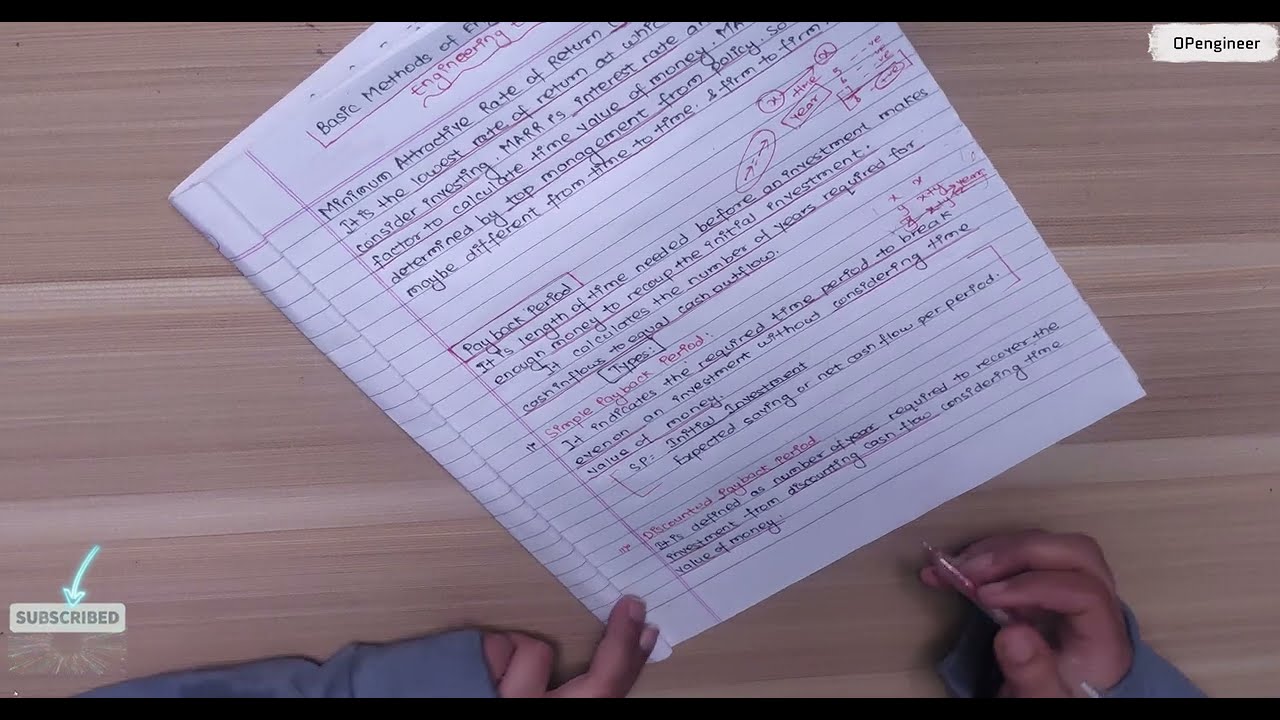 OPengineer
Basic Methods of
Engineering
Minimum Attractive Rate of Return
It is the lowest rate of return at which
consider investing. MARR is interest rate
factor to calculate time value of money.
determined by top management from policy. So
maybe different from time to time. & firm to firm.
x time
year
Payback Period
It is length of time needed before an investment makes
enough money to recoup the initial investment.
It calculates the number of years required for
cash inflows to equal cash outflow.
Types:
i) Simple Payback Period:
It indicates the required time period to break
even on an investment without considering time
value of money.
SP = Initial Investment
Expected saving or net cash flow per period.
ii) Discounted Payback Period
It is defined as number of year required to recover the
investment from discounting cash flow considering time
value of money.
SUBSCRIBED